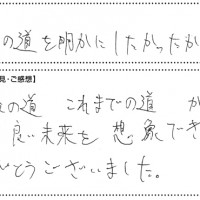 の道を明かにしたかったか
見・ご感想】
の道 これまでの道 か
良い未来を想象でき
がとうございました。